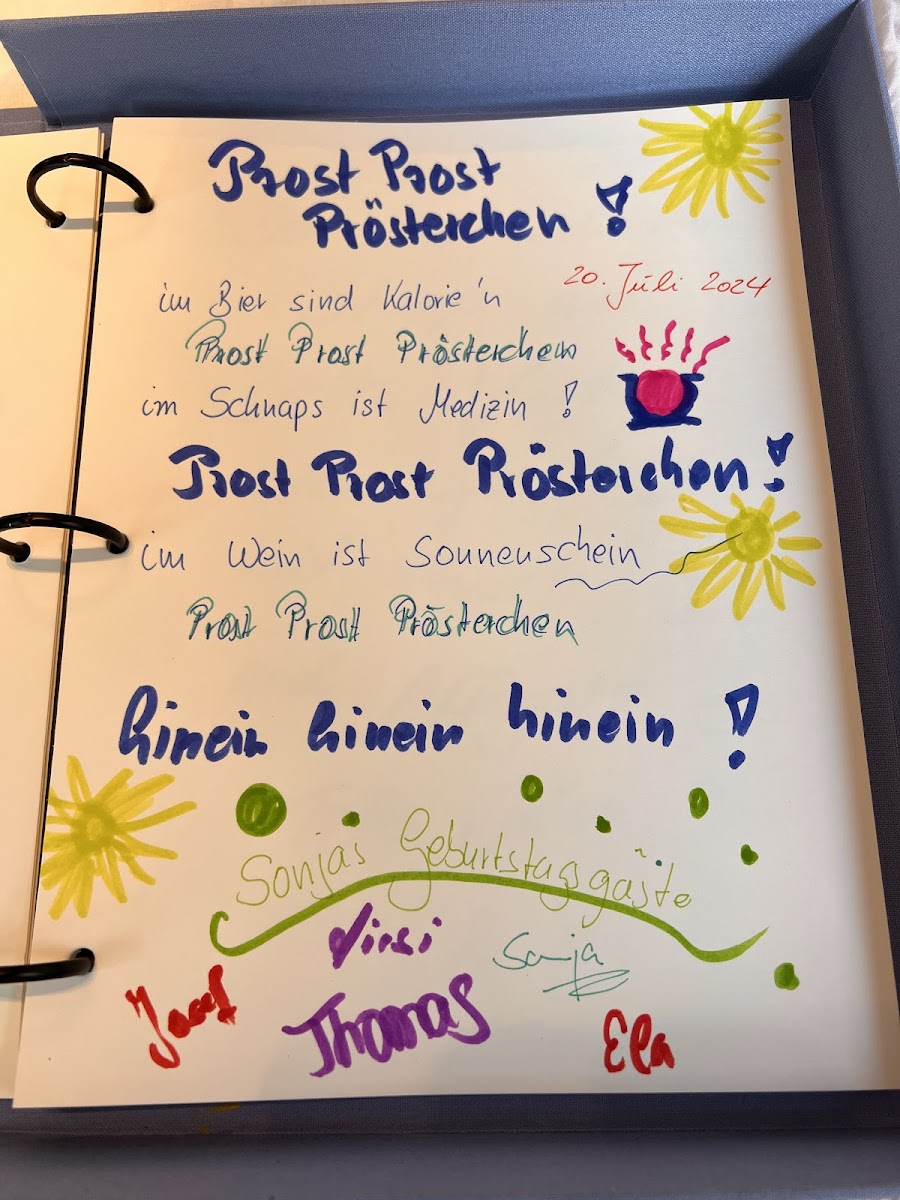 Prost Prost
Prösterchen !
20. Juli 2024
im Bier sind Kalorie'n
Prost Prost Prösterchen
im Schnaps ist Medizin !
Prost Prost Prösterchen !
im Wein ist Sonnenschein
Prost Prost Prösterchen
hinein hinein hinein !
Sonjas Geburtstagsgäste
Sonja
Josef
Thomas
Ela